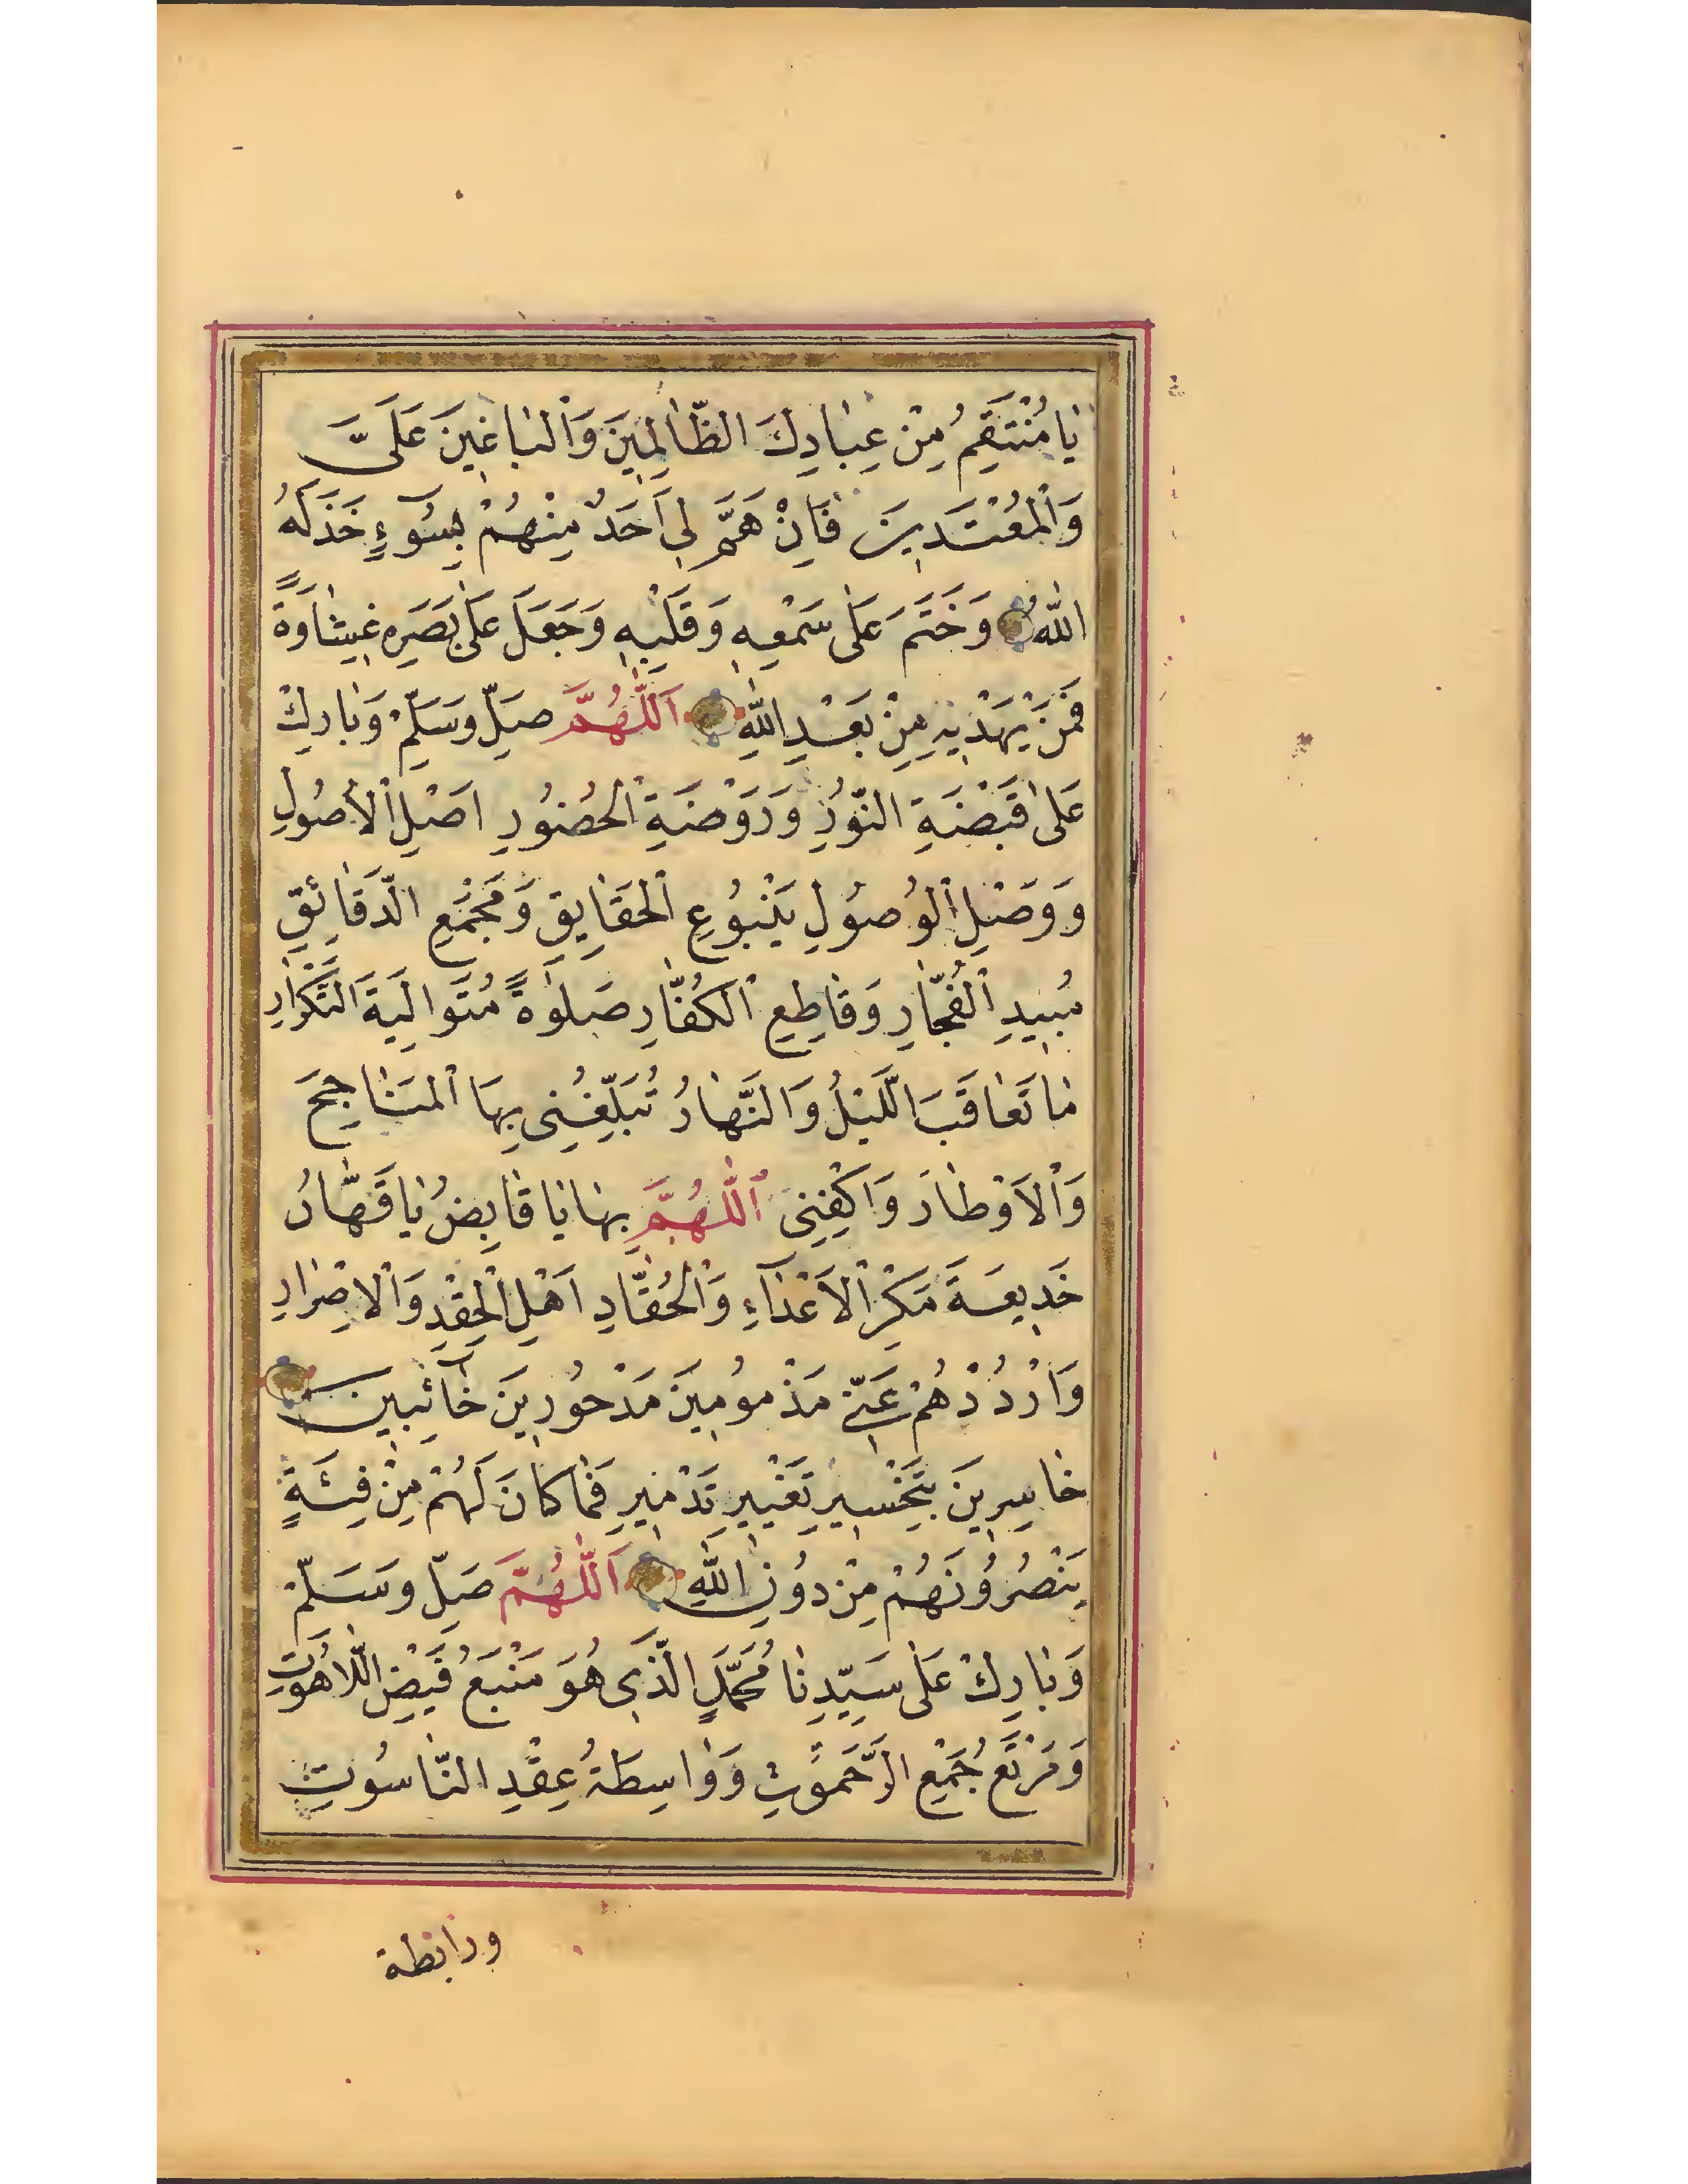 يَا مُنْتَقِمُ مِنْ عِبَادِكَ الظَّالِمِينَ وَالْبَاغِينَ عَلَىَّ
وَالْمُعْتَدِينَ فَاِنْ هَمَّ لِي اَحَدٌ مِنْهُمْ بِسُوٓءٍ خَذَلَهُ
اللّٰهُ وَخَتَمَ عَلٰى سَمْعِهِ وَقَلْبِهِ وَجَعَلَ عَلٰى بَصَرِهِ غِشَاوَةً
فَمَنْ يَهْدِيهِ مِنْ بَعْدِ اللّٰهِ اَللّٰهُمَّ صَلِّ وَسَلِّمْ وَبَارِكْ
عَلٰى قَبْضَةِ النُّورِ وَرَوْضَةِ الْحُضُورِ اَصْلِ الْاُصُولِ
وَوَصْلِ الْوُصُولِ يَنْبُوعِ الْحَقَايِقِ وَمَجْمَعِ الدَّقَائِقِ
مُبِيدِ الْفُجَّارِ وَقَاطِعِ الْكُفَّارِ صَلٰوةً مُتَوَالِيَةَ التَّكْرَارِ
مَا تَعَاقَبَ الَّيْلُ وَالنَّهَارُ تُبَلِّغُنِى بِهَا الْمَنَاجِحَ
وَالْاَوْطَارَ وَاكْفِنِى اَللّٰهُمَّ بِهَا يَا قَابِضُ يَا قَهَّارُ
خَدِيعَةَ مَكْرِ الْاَعْدَآءِ وَالْحُقَّادِ اَهْلِ الْحِقْدِ وَالْاِضْرَارِ
وَارْدُدْهُمْ عَنِّى مَذْمُومِينَ مَدْحُورِينَ خَآئِبِينَ
خَاسِرِينَ بِتَخْسِيرِ تَغْيِيرِ تَدْمِيرِ فَمَا كَانَ لَهُمْ مِنْ فِئَةٍ
يَنْصُرُونَهُمْ مِنْ دُونِ اللّٰهِ اَللّٰهُمَّ صَلِّ وَسَلِّمْ
وَبَارِكْ عَلٰى سَيِّدِنَا مُحَمَّدٍ الَّذِى هُوَ مَنْبَعُ فَيْضِ اللَّاهُوتِ
وَمَرْتَعُ جُمَعِ الرَّحَمُوتِ وَوَاسِطَةُ عِقْدِ النَّاسُوتِ
ورابطة